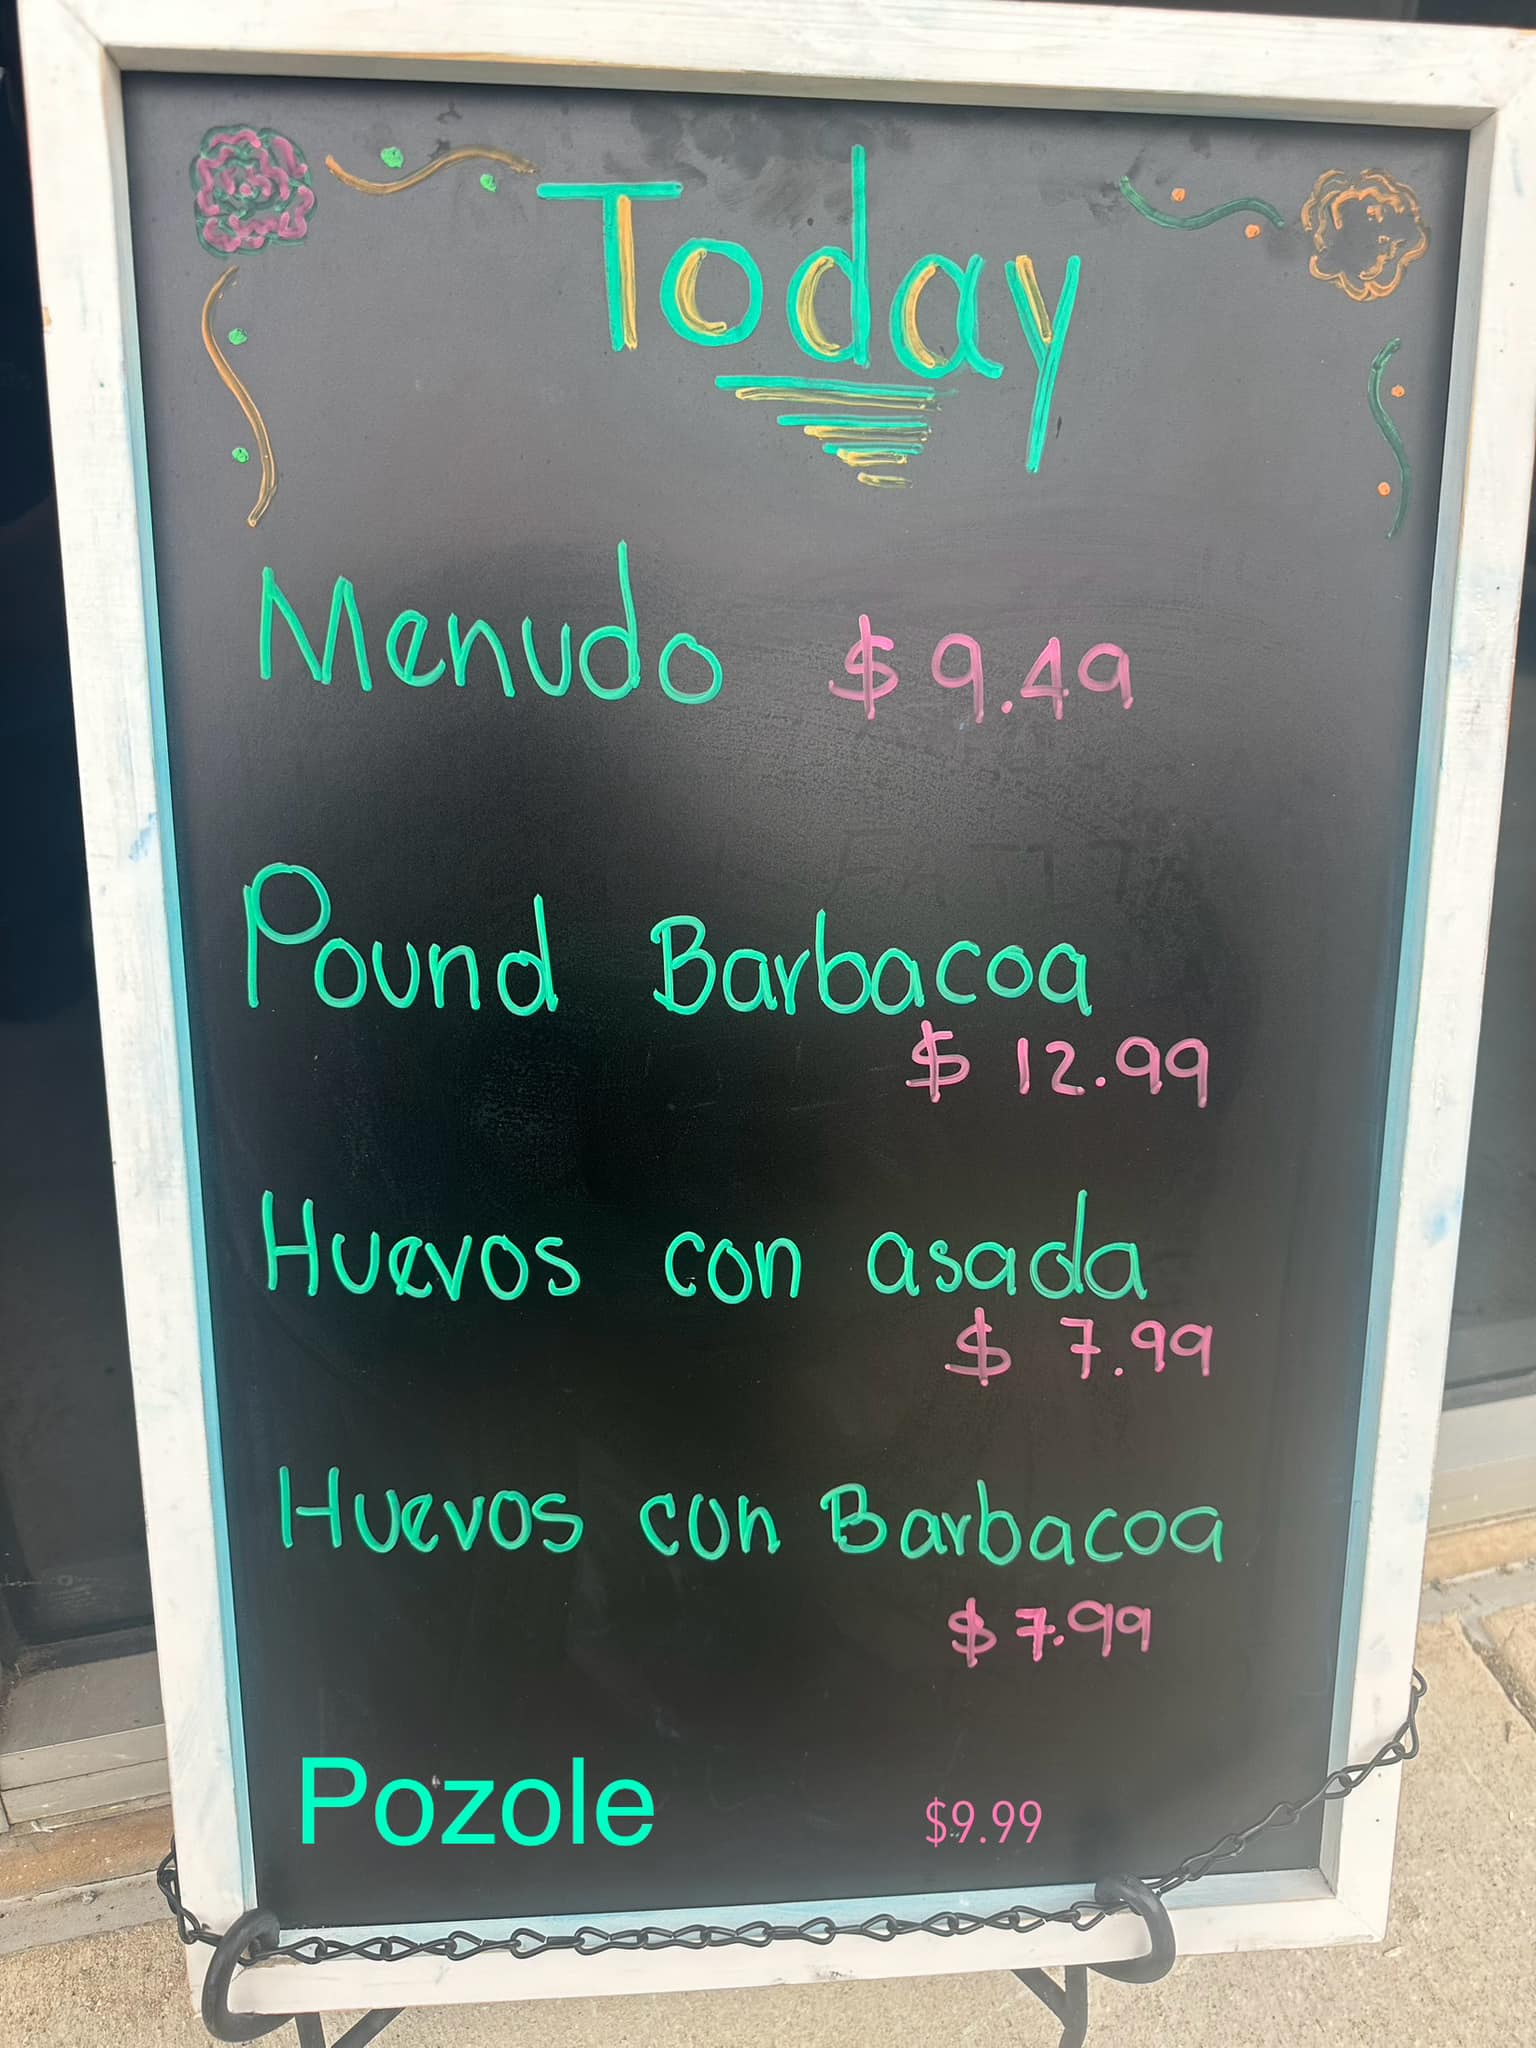 Today
Menudo $9.49
Pound Barbacoa
$ 12.99
Huevos con asada
$ 7.99
Huevos con Barbacoa
$ 7.99
Pozole $9.99